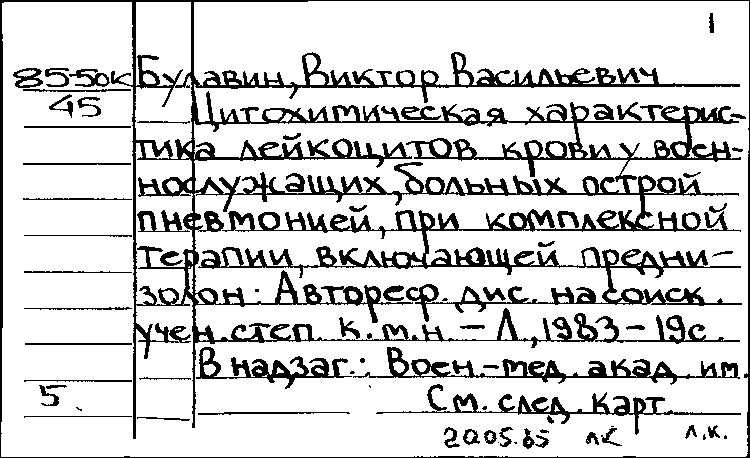 1
85-50к Булавин, Виктор Васильевич
45 Цитохимическая характерис-
тика лейкоцитов крови у воен-
нослужащих, больных острой
пневмонией, при комплексной
терапии, включающей предни-
золон: Автореф. дис. на соиск.
учен. степ. к.м.н. - Л., 1983 - 19с.
В надзаг.: Воен.-мед. акад. им.
5. См. след. карт.
20.05.85 лк л.к.